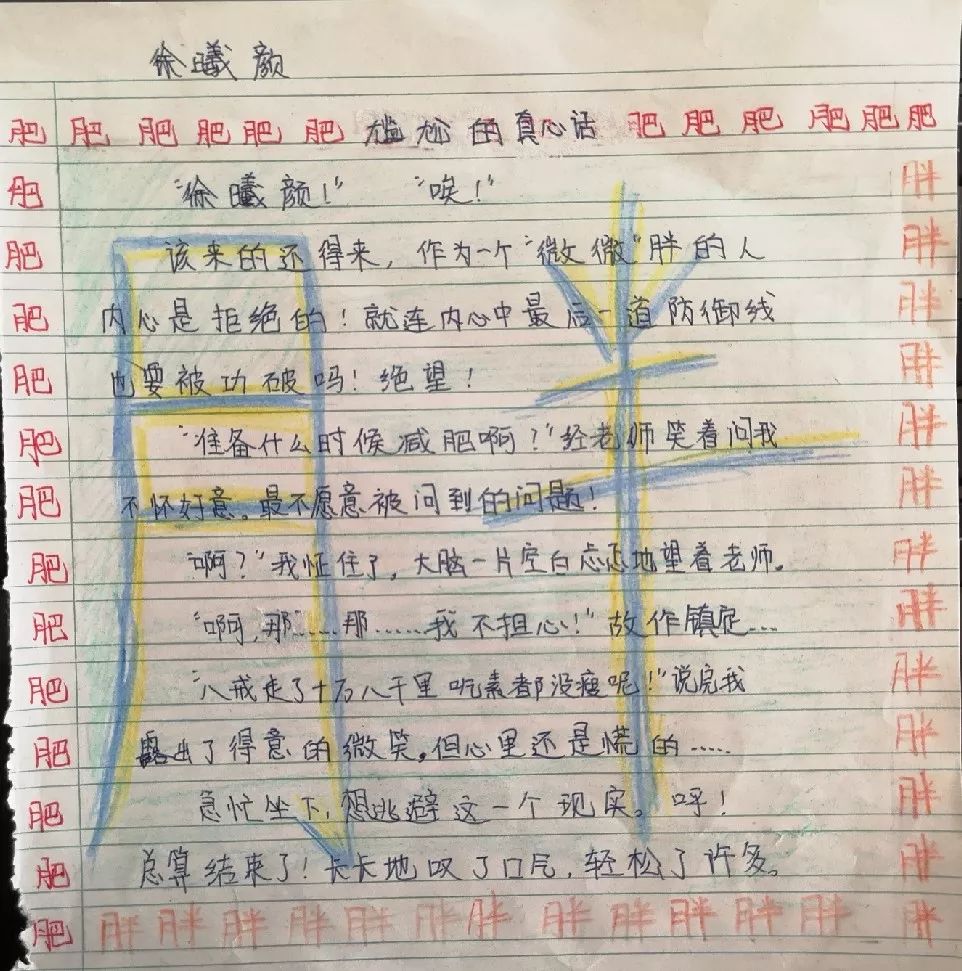 徐曦颜
肥 肥 肥 肥 肥 肥 尴尬的真心话 肥 肥 肥 肥 肥 肥
肥 "徐曦颜!" "唉!" 胖
肥 该来的还得来,作为一个"微微"胖的人 胖
肥 内心是拒绝的!就连内心中最后一道防御线 胖
肥 也要被功破吗!绝望! 胖
肥 "准备什么时候减肥啊?"经老师笑着问我 胖
肥 不怀好意。最不愿意被问到的问题! 胖
肥 "啊?"我怔住了,大脑一片空白忐忑地望着老师。 胖
肥 "啊,那……那……我不担心!"故作镇定… 胖
肥 "八戒走了十万八千里吃素者都没瘦呢!"说完我 胖
肥 露出了得意的微笑。但心里还是慌的…… 胖
肥 急忙坐下,想逃避这一个现实。呼! 胖
肥 总算结束了!长长地叹了口气,轻松了许多。 胖
肥 胖 胖 胖 胖 胖 胖 胖 胖 胖 胖 胖 胖 胖
胖